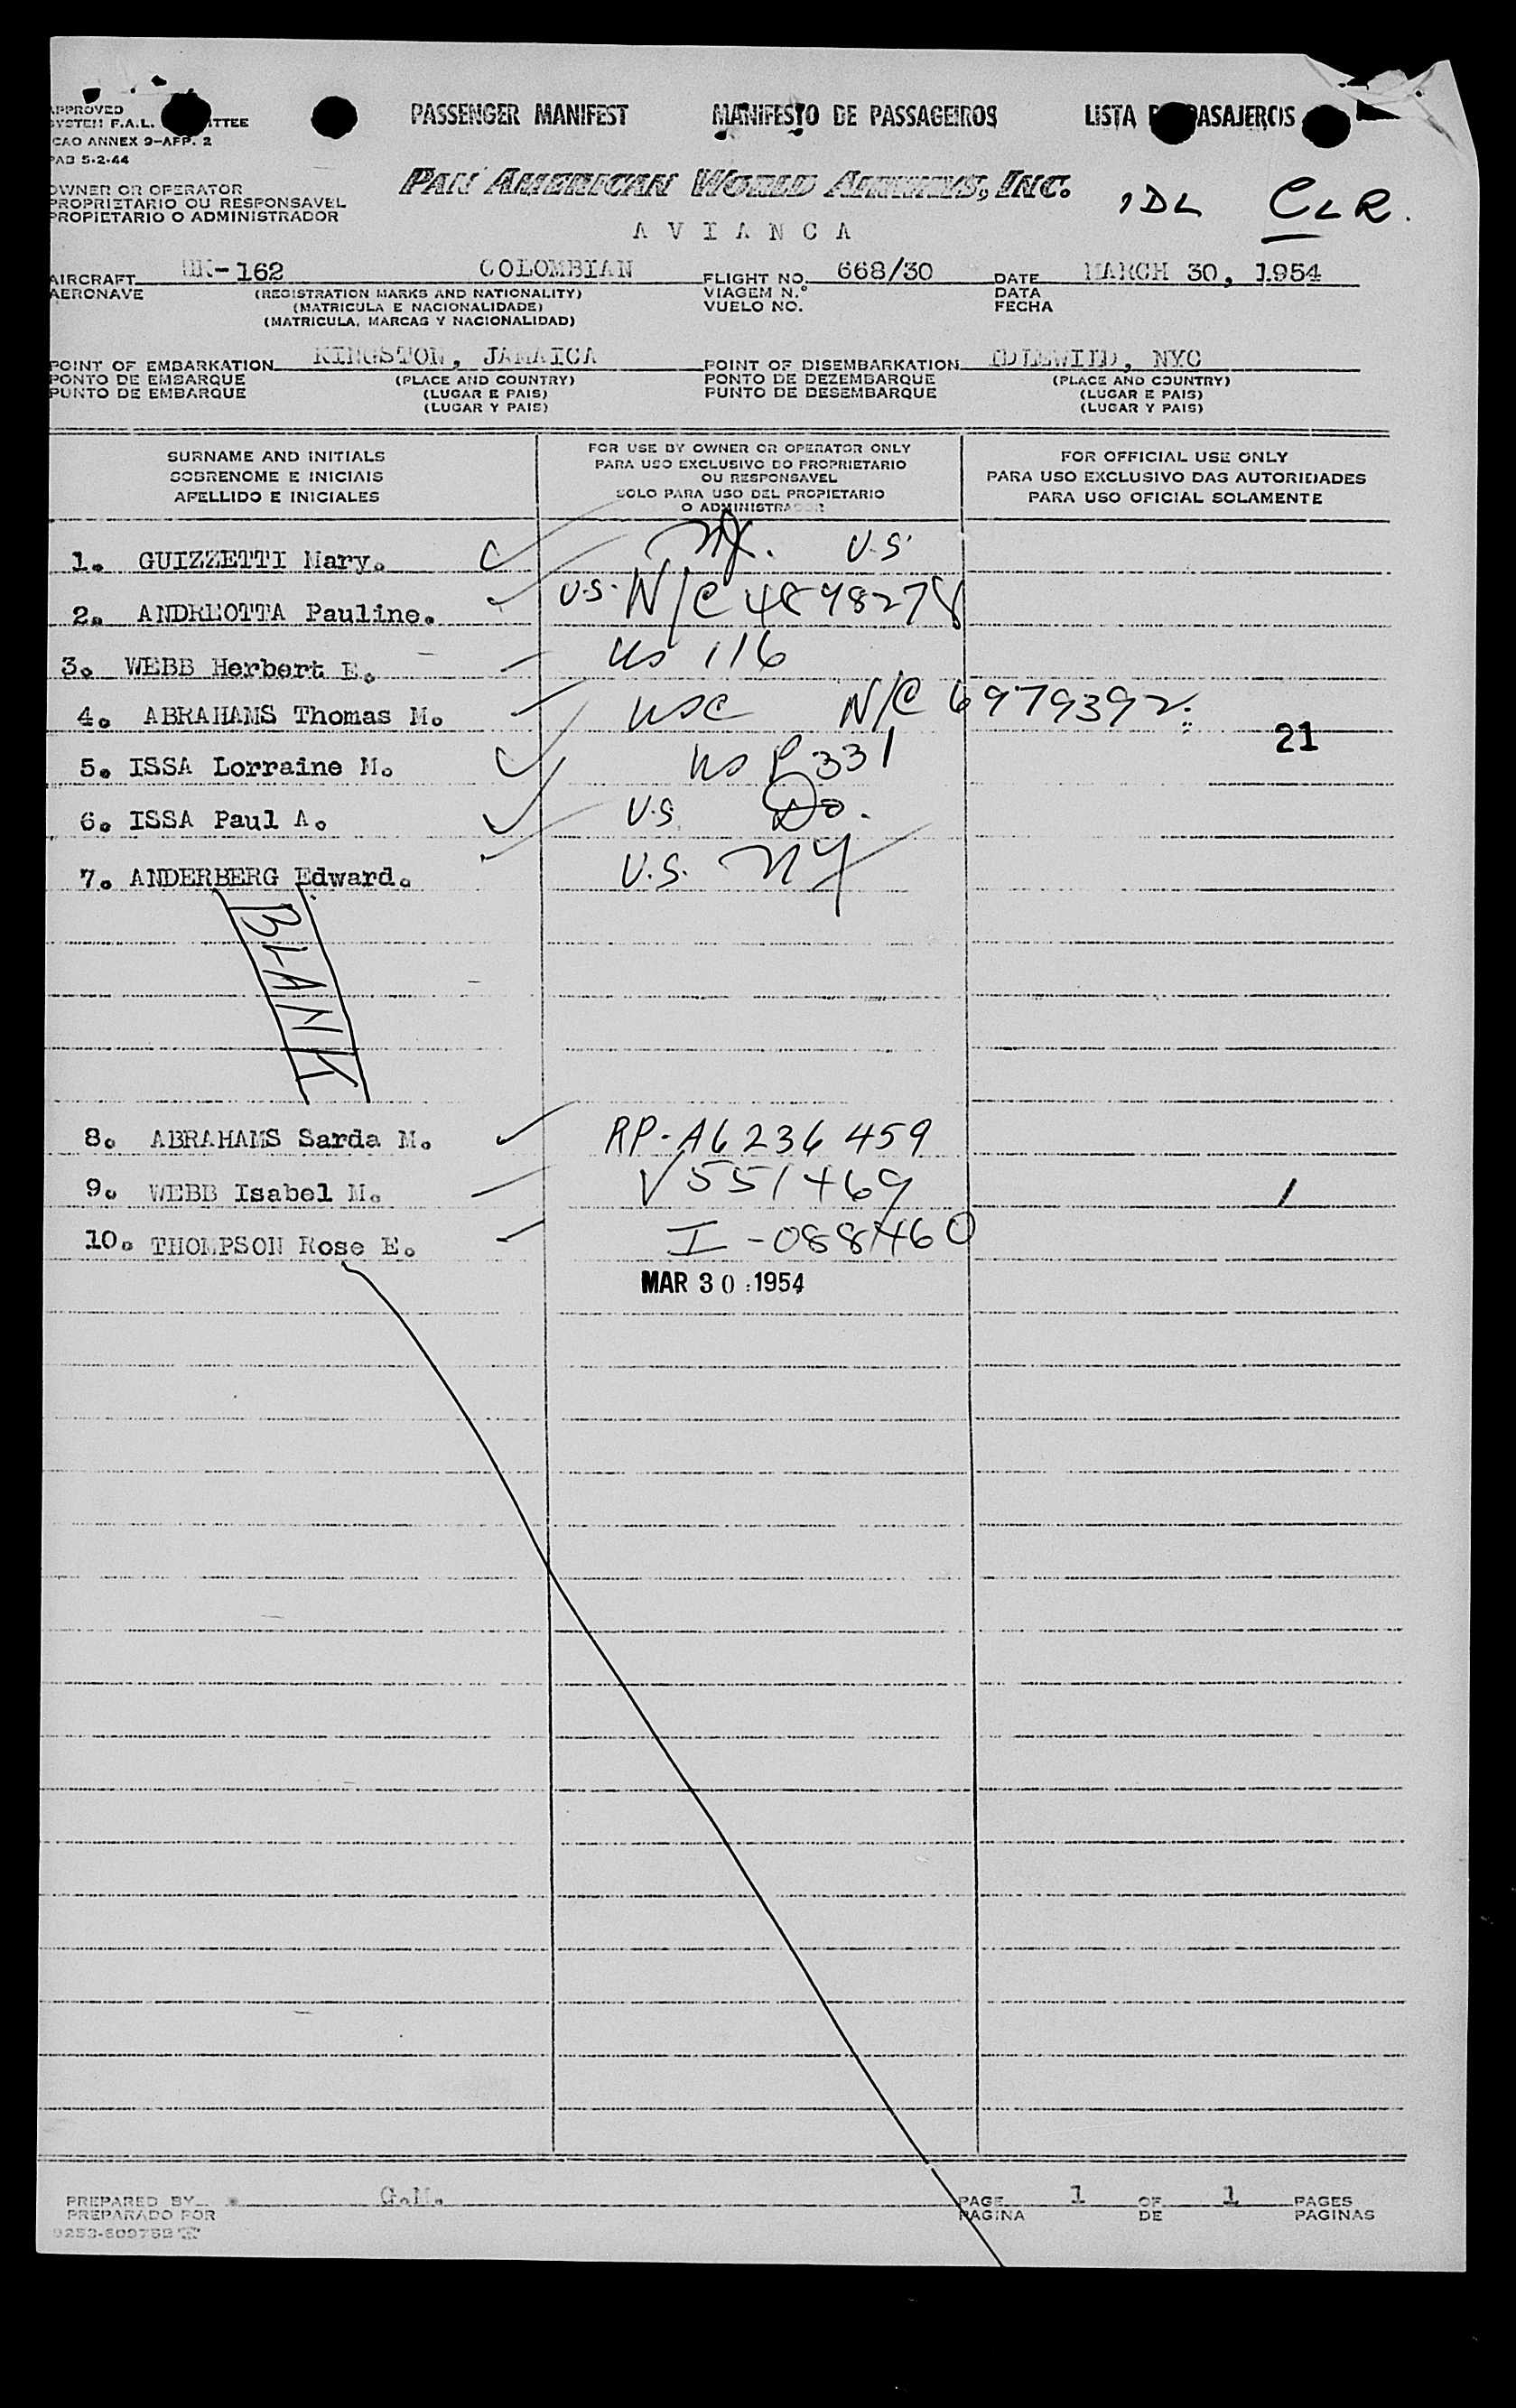 PASSENGER MANIFEST MANIFESTO DE PASSAGEIROS LISTA PASAJEROS
APPROVED
SYSTEM F.A.L. TTEE
ICAO ANNEX 9-APP. 2
PAB 5-2-44
OWNER OR OPERATOR
PROPRIETARIO OU RESPONSAVEL
PROPIETARIO O ADMINISTRADOR
PAN AMERICAN WORLD AIRWAYS, INC.
IDL CLR.
AVIANCA
AIRCRAFT HK-162 COLOMBIAN FLIGHT NO. 668/30 DATE MARCH 30, 1954
AERONAVE (REGISTRATION MARKS AND NATIONALITY) VIAGEM N.° DATA
(MATRICULA E NACIONALIDADE) VUELO NO. FECHA
(MATRICULA, MARCAS Y NACIONALIDAD)
POINT OF EMBARKATION KINGSTON, JAMAICA POINT OF DISEMBARKATION IDLEWILD, NYC
PONTO DE EMBARQUE (PLACE AND COUNTRY) PONTO DE DEZEMBARQUE (PLACE AND COUNTRY)
PUNTO DE EMBARQUE (LUGAR E PAIS) PUNTO DE DESEMBARQUE (LUGAR E PAIS)
(LUGAR Y PAIS) (LUGAR Y PAIS)
SURNAME AND INITIALS
SOBRENOME E INICIAIS
APELLIDO E INICIALES
FOR USE BY OWNER OR OPERATOR ONLY
PARA USO EXCLUSIVO DO PROPRIETARIO
OU RESPONSAVEL
SOLO PARA USO DEL PROPIETARIO
O ADMINISTRADOR
FOR OFFICIAL USE ONLY
PARA USO EXCLUSIVO DAS AUTORIDADES
PARA USO OFICIAL SOLAMENTE
1. GUIZZETTI Mary. U.S.
2. ANDREOTTA Pauline. U.S. N/C 4898278
3. WEBB Herbert E. US 116
4. ABRAHAMS Thomas M. USC N/C 6979392
21
5. ISSA Lorraine M. US P 331
6. ISSA Paul A. U.S. Do.
7. ANDERBERG Edward. U.S. NY
BLANK
8. ABRAHAMS Sarda M. RP-A6236459
9. WEBB Isabel M. V551469 1
10. THOMPSON Rose E. I-088460
MAR 30 1954
PREPARED BY G.M. PAGE 1 OF 1 PAGES
PREPARADO POR PAGINA DE PAGINAS